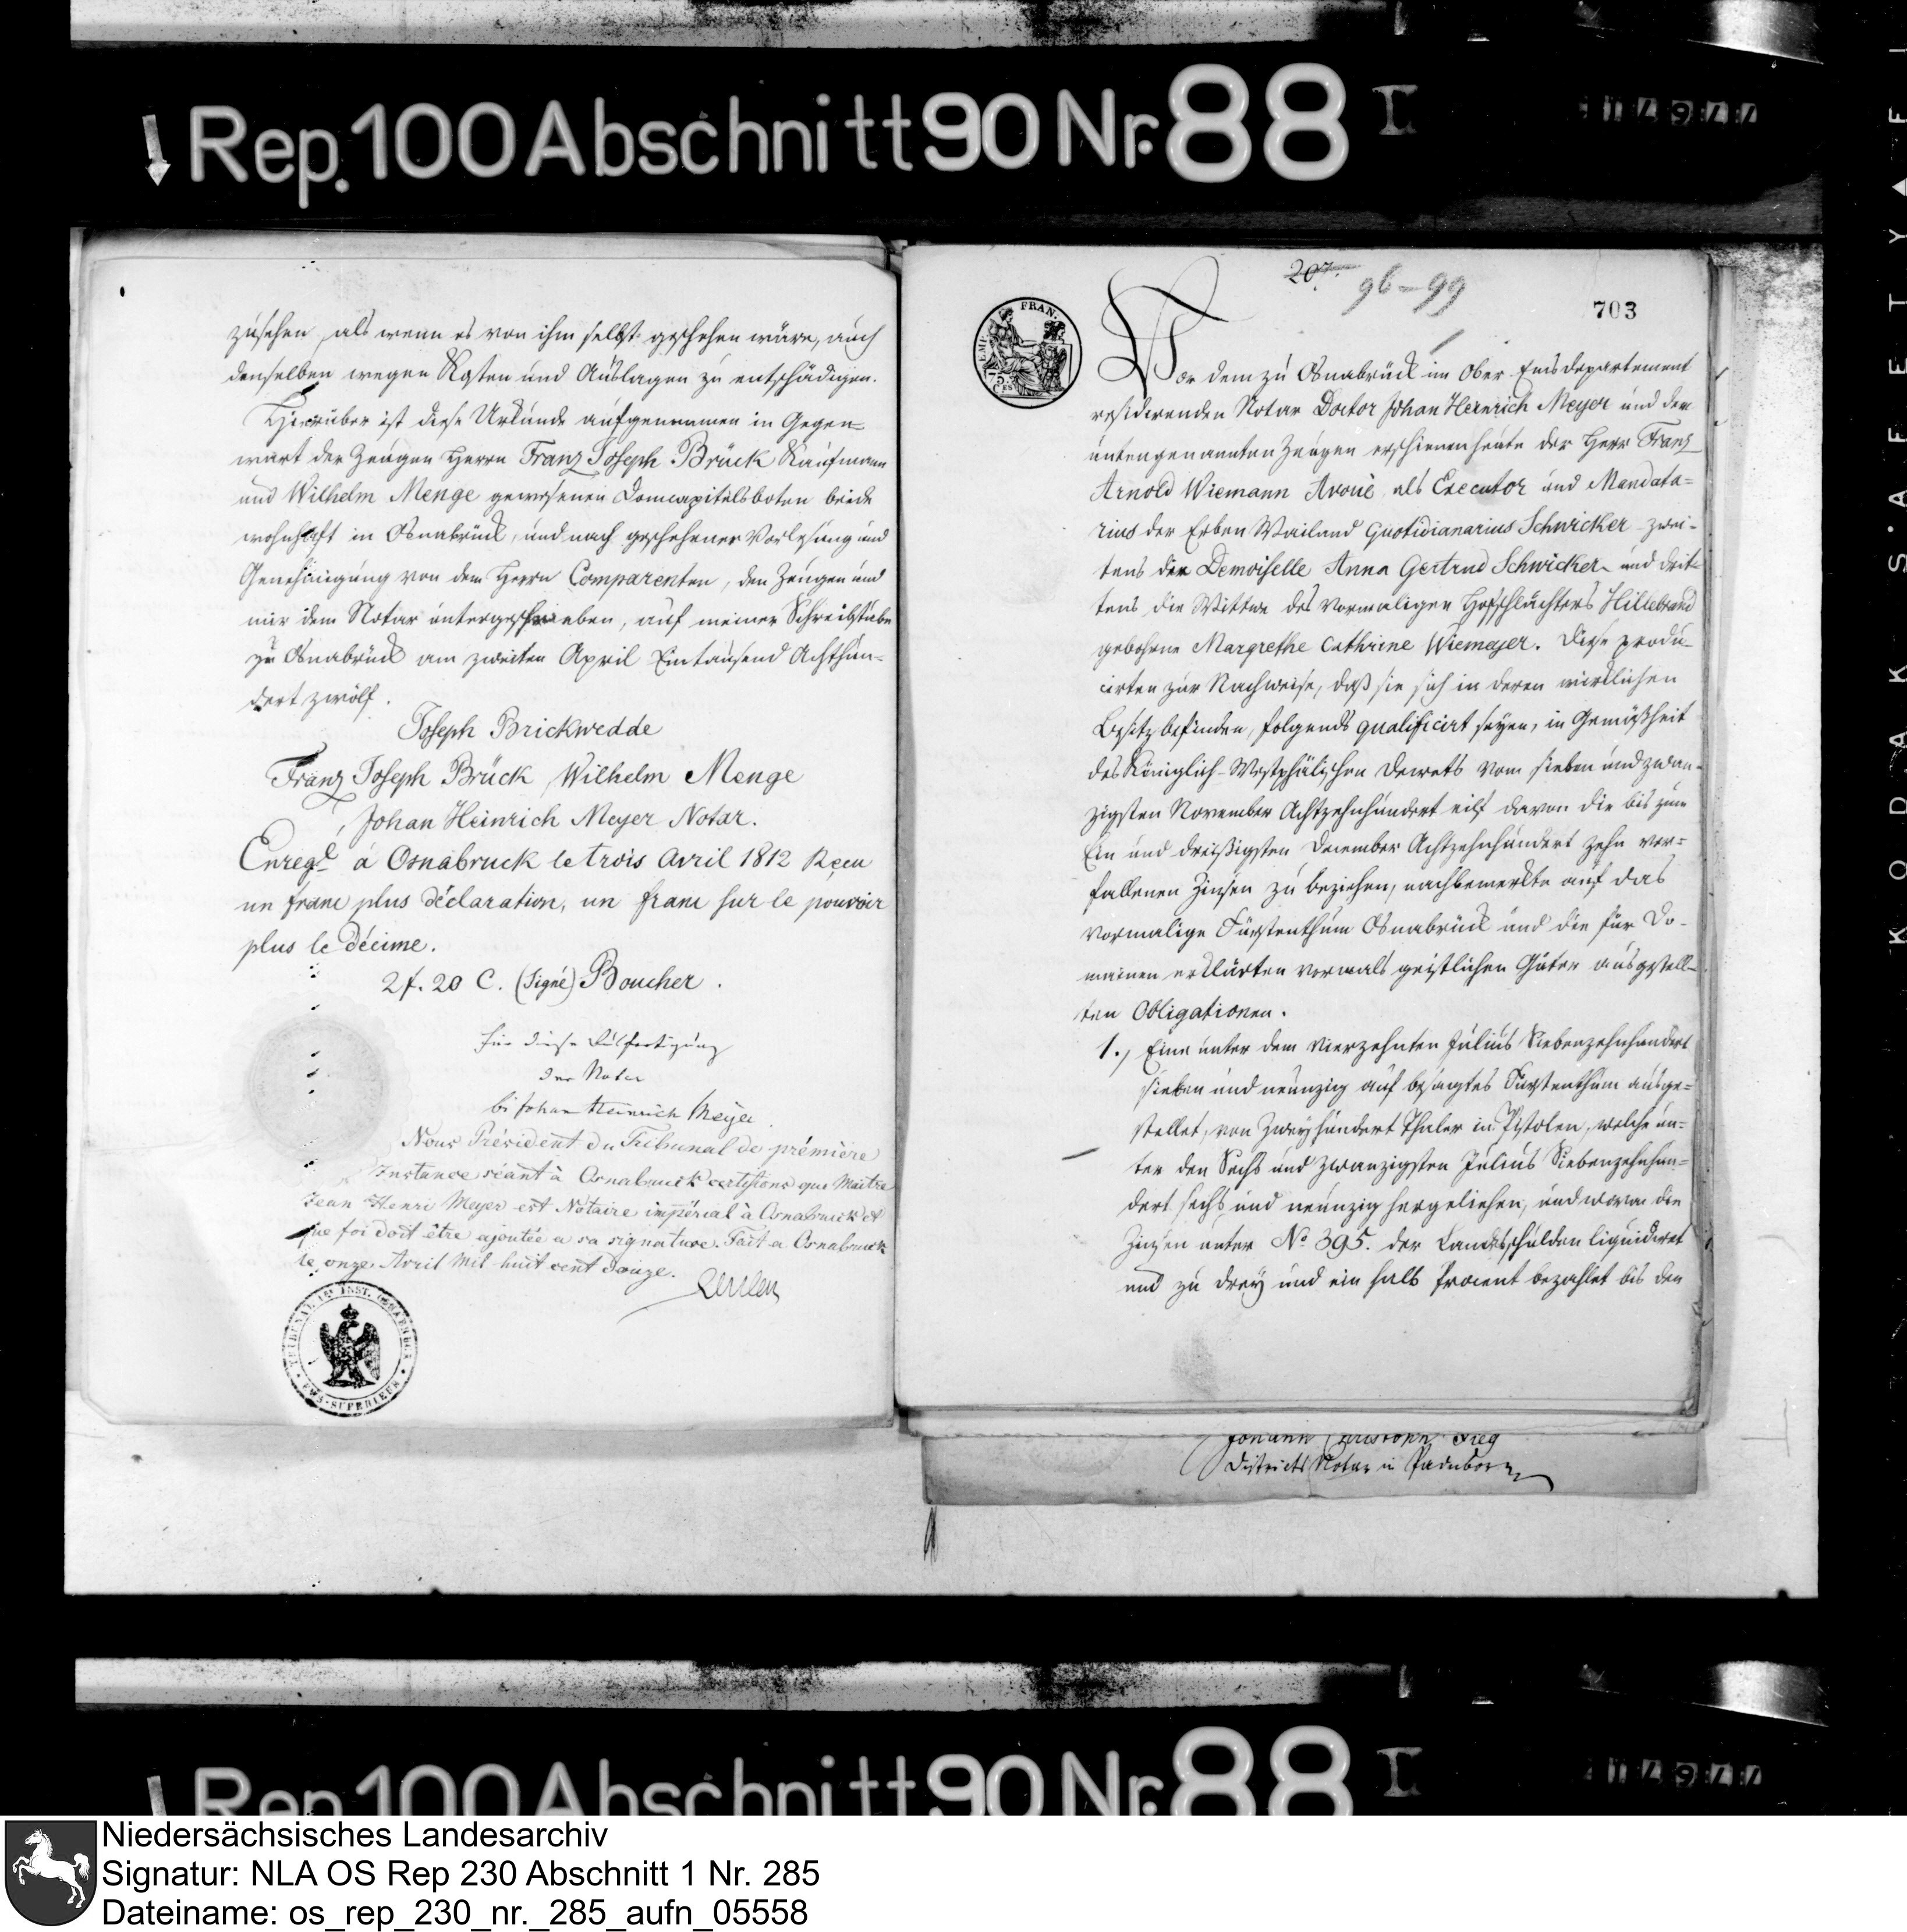 Rep. 100 Abschnitt 90 Nr. 88 I
zusehen, als wenn es von ihm selbst geschehen wäre, auch
denselben wegen Kosten und Auslagen zu entschädigen.
Hierüber ist diese Urkunde aufgenommen in Gegen=
wart der Zeugen Herrn Franz Joseph Brück Kaufmann
und Wilhelm Menge gewesenen Domcapitelsboten beide
wohnhaft in Osnabrück, und nach geschehener Vorlesung und
Genehmigung von dem Herrn Comparenten, den Zeugen und
mir dem Notar untergeschrieben, auf meiner Schreibstube
zu Osnabrück am zweiten April Eintausend Achthun=
dert zwölf.
Joseph Brickwedde
Franz Joseph Brück, Wilhelm Menge
Johan Heinrich Meyer Notar.
Enregé à Osnabruck le trois Avril 1812 Reçu
un franc plus déclaration, un franc sur le pouvoir
plus le Décime.
2f. 20 C. (Signé) Boucher.
für diese Ausfertigung
der Notar
Johan Heinrich Meyer
Nous Président du Tribunal de prémière
Instance séant à Osnabruck certifions que Maitre
Jean Henri Meyer est Notaire impérial à Osnabruck et
que foi doit être ajoutée a sa signature. Fait a Osnabruck
le onze Avril Mil huit cent douze.
TRIBUNAL 1RE INST. OSNABRUCK
EMS-SUPERIEUR
207.
96-99
703
FRAN.
75
Vor dem zu Osnabrück im Ober-Emsdepartement
residirenden Notar Doctor Johan Heinrich Meyer und den
untengenannten Zeugen erschienen heute der Herr Franz
Arnold Wiemann Avoué als Executor und Mandata=
rius der Erben Wailand Quotidianarius Schwicker zwei-
tens die Demoiselle Anna Gertrud Schwicker und drit=
tens die Wittwe des vormaligen Hofschlächters Hillebrand
gebohrne Margrethe Cathrine Wiemeyer. Diese produ-
cirten zur Nachweise, daß sie sich in deren wirklichen
Besitz befinden, folgends qualificirt seyen, in Gemäßheit
des Königlich-Westphälischen Decrets vom sieben und zwan-
zigsten November Achtzehnhundert eilf davon die bis zum
Ein und dreißigsten December Achtzehnhundert zehn ver=
fallenen Zinsen zu beziehen, nachbemerkte auf das
vormalige Fürstenthum Osnabrück und die für Do-
mainen erklärten vormals geistlichen Güter ausgestell-
ten Obligationen.
1., Eine unter dem vierzehnten Julius Siebenzehnhundert
sieben und neunzig auf besagtes Fürstenthum ausge=
stellet, von Zweyhundert Thaler in Pistolen, welche un-
ter den Sechs und zwanzigsten Julius Siebenzehnhun=
dert sechs und neunzig hergeliehen, und wovon die
Zinsen unter No 395. der Landesschulden liquidiret
und zu drey und ein halb Procent bezahlet bis den
Johann Christoph
Districts Notar in Paderborn
KODAK SAFETY
Rep. 100 Abschnitt 90 Nr. 88 I
Niedersächsisches Landesarchiv
Signatur: NLA OS Rep 230 Abschnitt 1 Nr. 285
Dateiname: os_rep_230_nr._285_aufn_05558